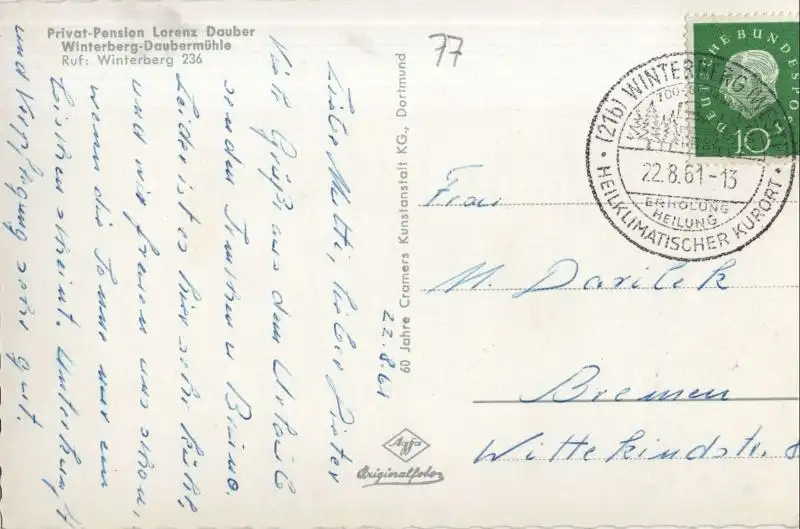 Privat-Pension Lorenz Dauber
Winterberg-Daubermühle
Ruf: Winterberg 236
77
22.8.61
Liebe Mutti, lieber Dieter
Viele Grüße aus dem Urlaub
senden Traute u. Bruno.
Leider ist es hier sehr kühl,
und wir freuen uns schon,
wenn die Sonne nur ein
bischen scheint. Unterkunft
und Verpflegung sehr gut.
60 Jahre Cramers Kunstanstalt KG., Dortmund
Agfa
Originalfoto
DEUTSCHE BUNDESPOST
10
(21b) WINTERBERG (WESTF)
700-
22.8.61-13
ERHOLUNG
HEILUNG
HEILKLIMATISCHER KURORT
Frau
M. Darilek
Bremen
Wittekindstr. 8